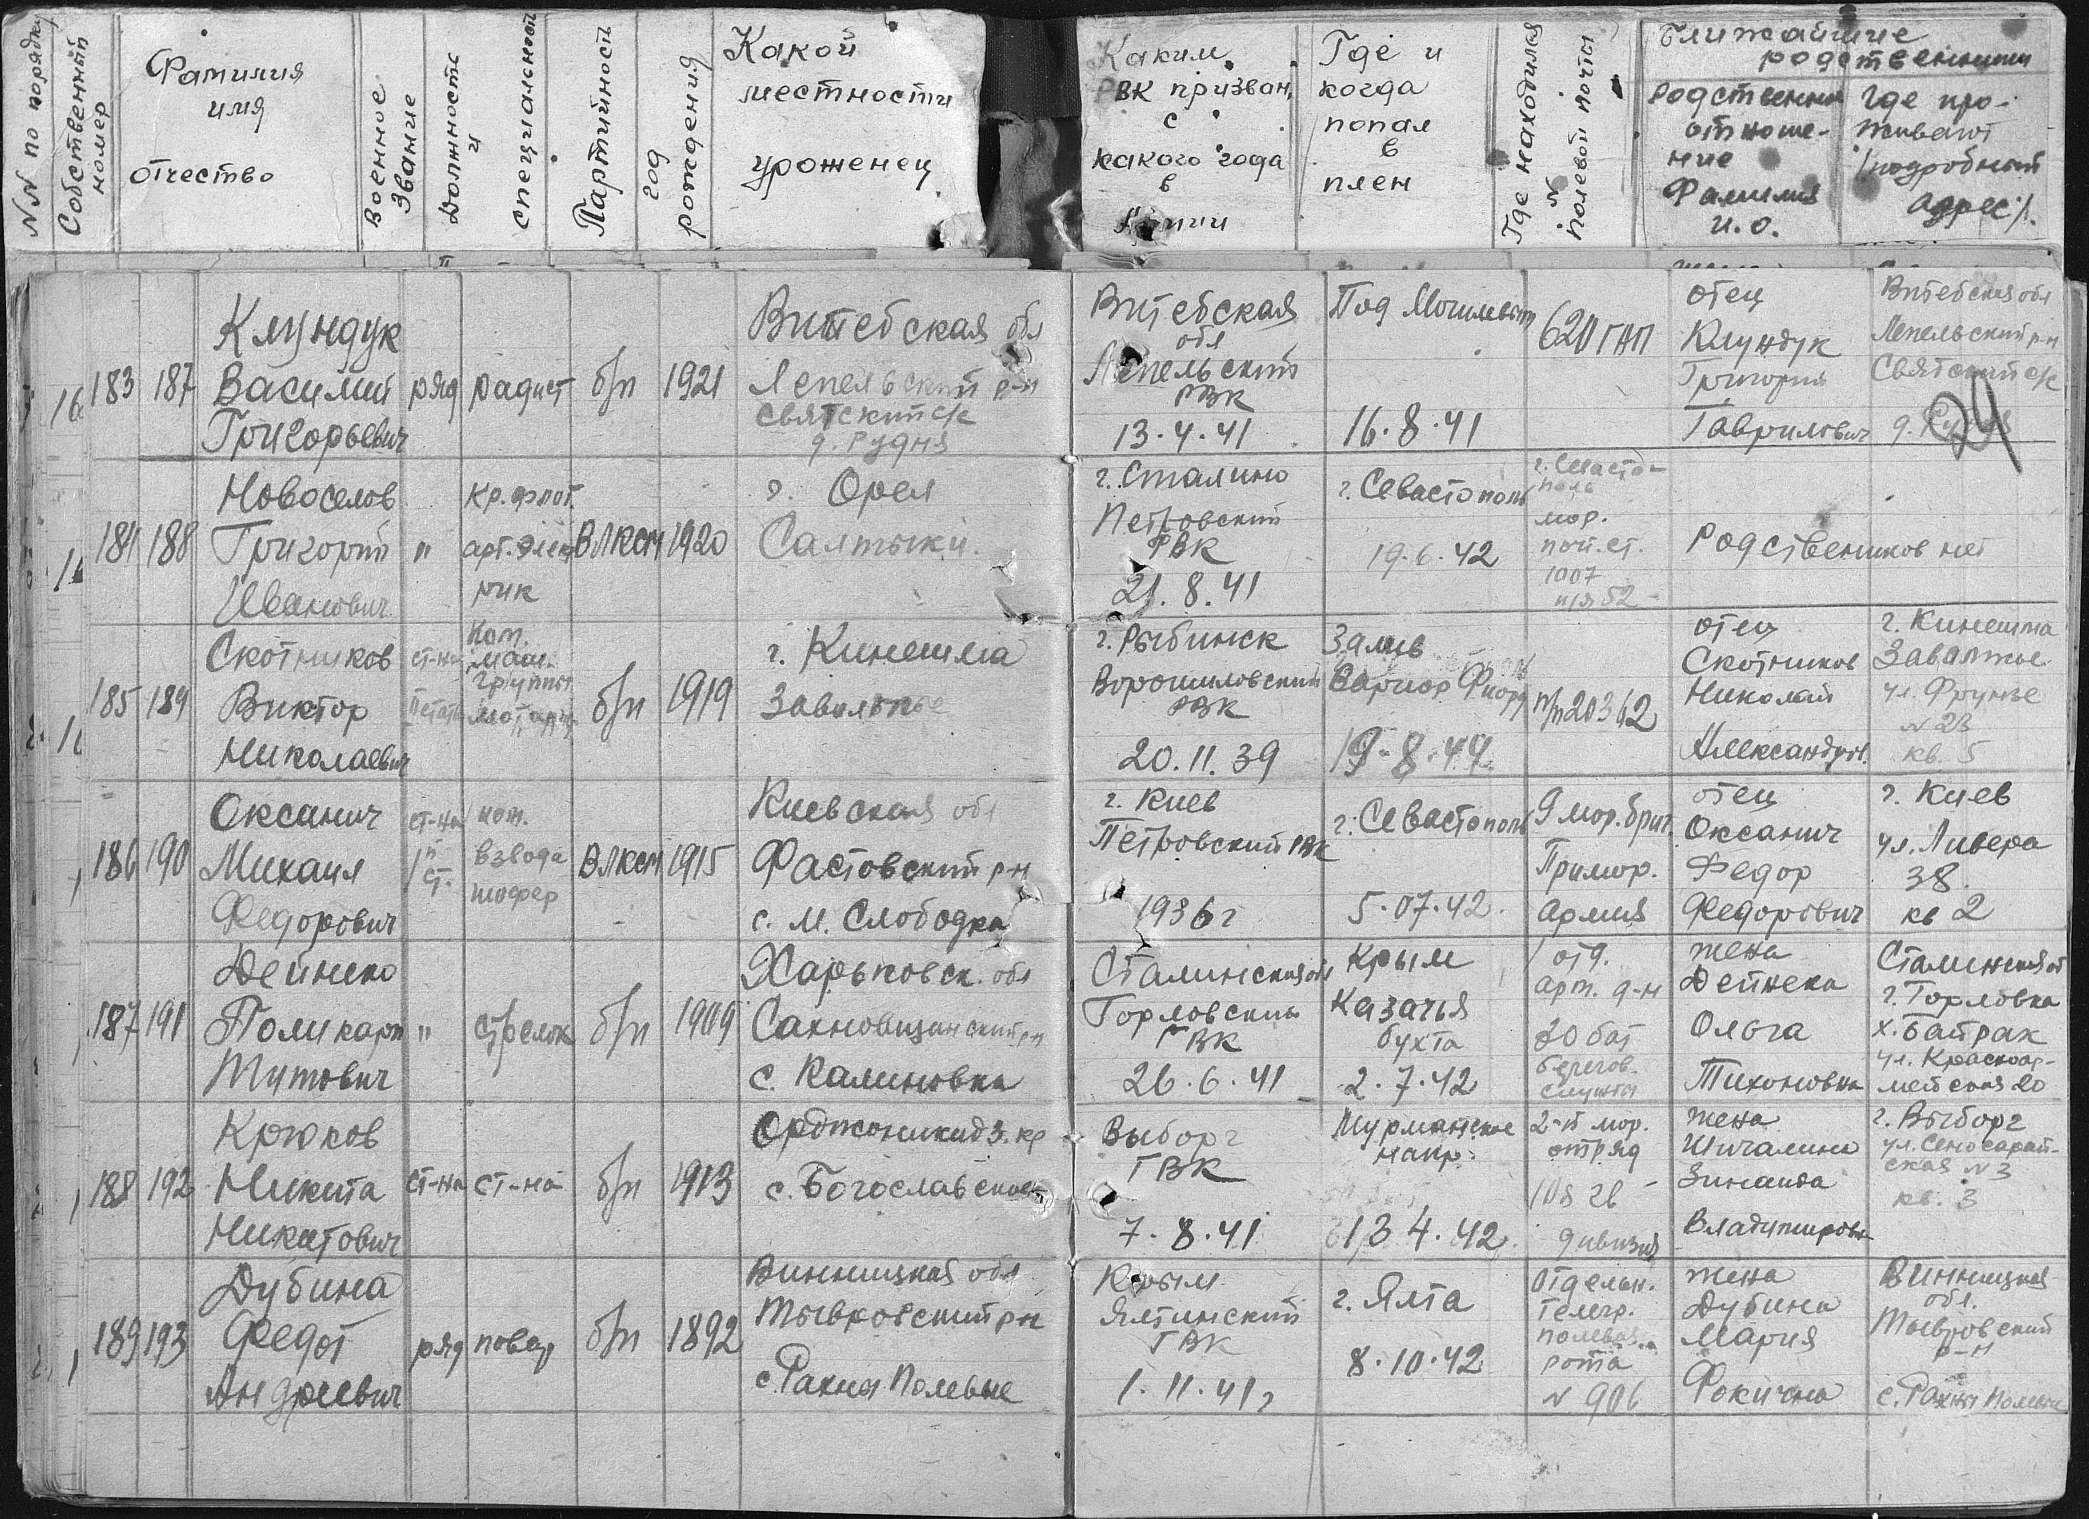 NN по порядку
Собственный номер
Фамилия
имя
отчество
Военное звание
Должность и специальность
Партийность
год рождения
Какой
местности
уроженец
Каким
РВК призван,
с
какого года
в
Армии
Где и
когда
попал
в
плен
Где находился
N полевой почты
Ближайшие
родственники
Родственно
отноше-
ние
Фамилия
и.о.
Где про-
живают
/подробный
адрес/.
183 187
Клундук
Василий
Григорьевич
ряд
радист
б/п
1921
Витебская обл
Лепельский р-н
Святский с/с
д. Рудня
Витебская
обл
Лепельский
РВК
13.4.41
Под Могилевым
16.8.41
620 ГАП
отец
Клундук
Григорий
Гаврилович
Витебская обл
Лепельский р-н
Святский с/с
24
184 188
Новоселов
Григорий
Иванович
"
кр.флот.
арт.элект
рик
ВЛКСМ
1920
г. Орел
Салтыки.
г. Сталино
Петровский
РВК
21.8.41
г. Севастополь
19.6.42
г. Севасто-
поль
мор.
поч.ст.
1007
п/я 52
Родствеников нет
185 189
Скотников
Виктор
Николаевич
ст-на
ком.
маш.
группы
б/п
1919
г. Кинешма
Заволжье
г. Рыбинск
Ворошиловский
РВК
20.11.39
Залив
Вариор Фиорд
19.8.44
п/п 20362
отец
Скотников
Николай
Александров.
г. Кинешма
Заволжье
ул. Фрунзе
N 23
кв. 5
186 190
Оксанич
Михаил
Федорович
ст-на
1й
ст.
ком.
взвода
шофер
ВЛКСМ
1915
Киевская обл
Фастовский р-н
с. М. Слободка
г. Киев
Петровский РВК
1936 г
г. Севастополь
5.07.42.
9 мор.бриг.
Примор.
армия
отец
Оксанич
Федор
Федорович
г. Киев
ул. Ливера
38.
кв 2
187 191
Дейнеко
Поликарп
Титович
"
стрелок
б/п
1909
Харьковск. обл
Сахновщинский рн
с. Калиновка
Сталинская обл
Горловский
ГВК
26.6.41
Крым
Казачья
бухта
2.7.42
1 отд.
арт. д-н
20 бат
берегов.
службы
жена
Дейнека
Ольга
Тихоновна
Сталинская об
г. Горловка
х. Байрак
ул. Красноар-
мейская 20
188 192
Крюков
Никита
Никитович
ст-на
ст-на
б/п
1913
Орджоникидз. кр
с. Богославское
Выборг
ГВК
7.8.41
Мурманское
напр.
13 4.42.
2-й мор.
отряд
дивизия
жена
Шигалина
Зинаида
Владимировн
г. Выборг
ул. Сеносарай-
ская N 3
кв. 3
189 193
Дубина
Федот
Андреевич
ряд
повар
б/п
1892
Винницкая обл
Тывровский р-н
с. Рахны Полевые
Крым
Ялтинский
ГВК
1.11.41г
г. Ялта
8.10.42
Отдельн.
телегр.
полевая
рота
N 906
жена
Дубина
Мария
Фокична
Винницкая
обл.
Тывровский
р-н
с. Рахны Полевые